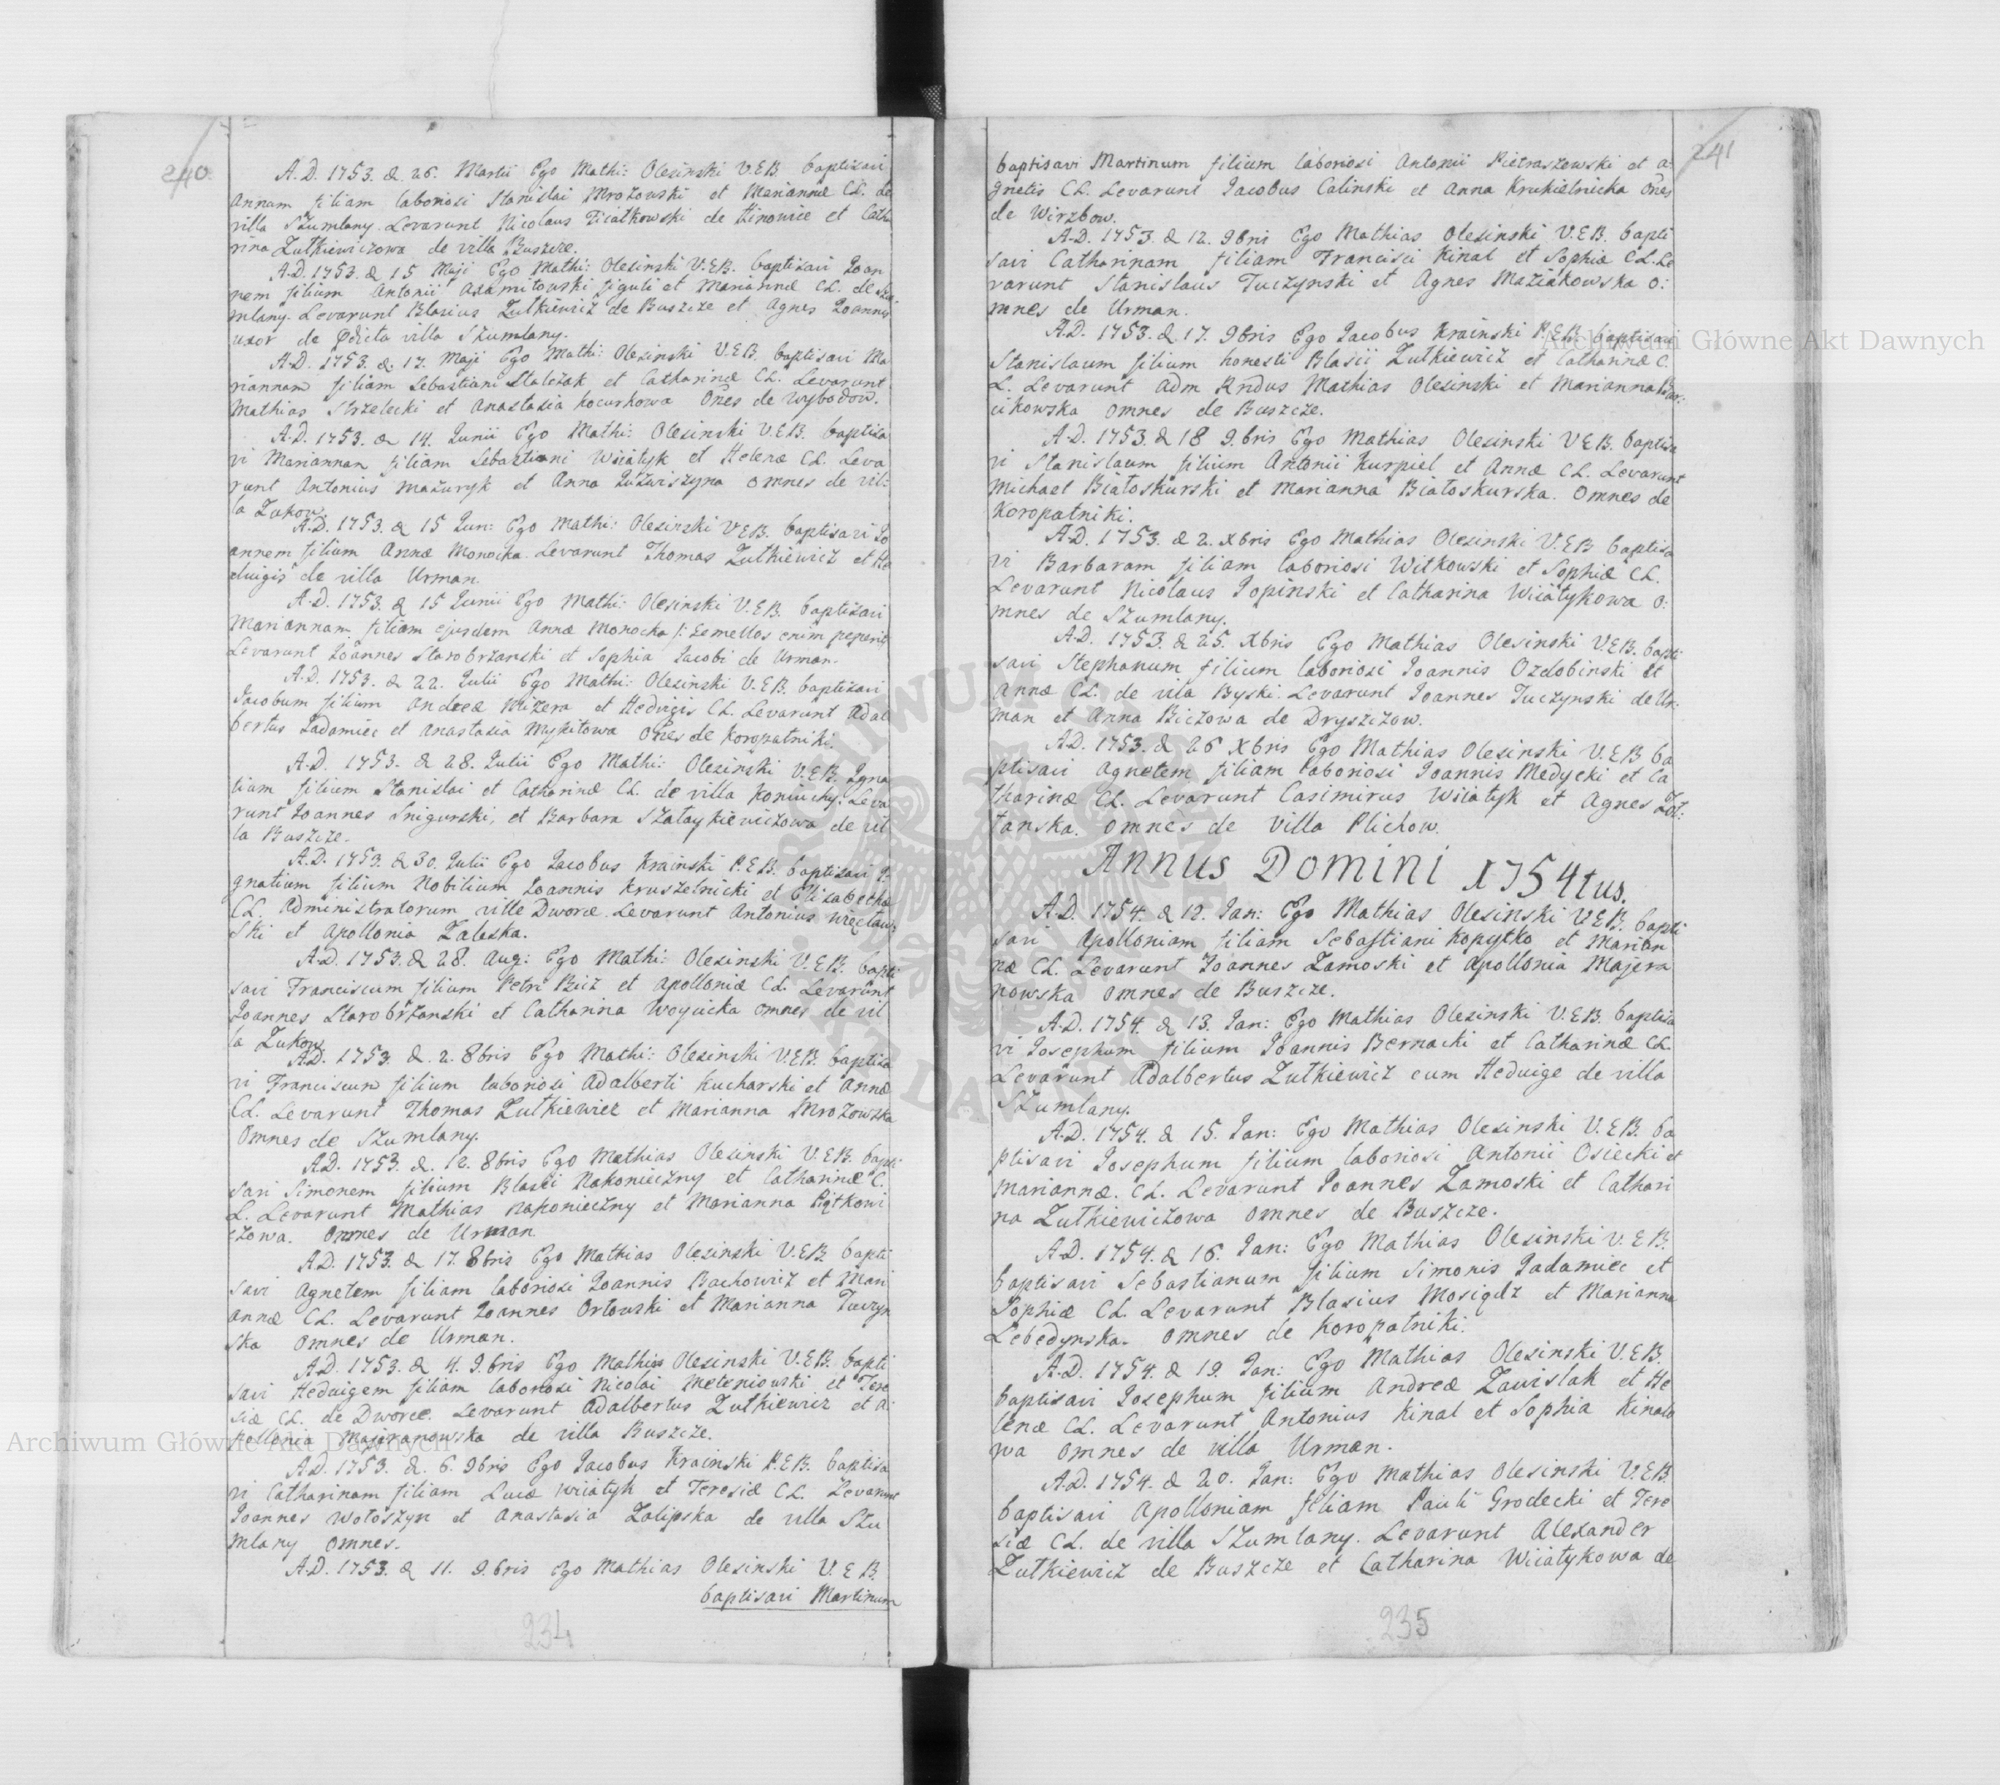 240.
A.D. 1753. d. 26. Martii Ego Mathi: Olesinski V.E.B. baptisavi
Annam filiam laboriosi Stanislai Mrozowski et Mariannæ CL. de
villa Szumlany. Levarunt Nicolaus Fiiałkowski de Hinowice et Catha
rina Zutkiewiczowa de villa Buszcze.
A.D. 1753. d. 15 Maji Ego Mathi: Olesinski V.E.B. baptisavi Joan
nem filium Antonii Adamitowski figuli et Mariannæ CL. de Szu
mlany. Levarunt Blasius Zutkiewicz de Buszcze et Agnes Joannis
uxor de pdicta villa Szumlany.
A.D. 1753. d. 17. Maji Ego Mathi: Olesinski V.E.B. baptisavi Ma
riannam filiam Sebastiani Stalczak et Catharinæ CL. Levarunt
Mathias Strzelecki et Anastasia Kocurkowa Oñes de Wybodow.
A.D. 1753. d. 14. Junii Ego Mathi: Olesinski V.E.B. baptisa
vi Mariannam filiam Sebastiani Wiiątyk et Helenæ CL. Leva
runt Antonius Mazuryk et Anna omnes de vil:
la Zukow.
A.D. 1753. d. 15 Jun: Ego Mathi: Olesinski V.E.B. baptisavi Jo
annem filium Annæ Monocka. Levarunt Thomas Zutkiewicz et He
duigis de villa Urman.
A.D. 1753. d. 15 Junii Ego Mathi: Olesinski V.E.B. baptisavi
Mariannam filiam ejusdem Annæ Monocka /: Gemellos enim peperit
Levarunt Joannes Starobrzanski et Sophia Jacobi de Urman.
A.D. 1753. d. 22. Julii Ego Mathi: Olesinski V.E.B. baptisavi
Jacobum filium Andreæ Mizera et Heduigis CL. Levarunt Adal
bertus Jadamiec et Anastasia Mykitowa Oñes de Koropatniki.
A.D. 1753. d. 28. Julii Ego Mathi: Olesinski V.E.B. Igna
tium filium Stanislai et Catharinæ CL. de villa Koniuchy. Leva
runt Joannes Snigurski, et Barbara Szataykiewiczowa de vil
la Buszcze.
A.D. 1753. d. 30. Julii Ego Jacobus Krainski P.E.B. baptisavi I:
gnatium filium Nobilium Joannis Kruszelnicki et Elisabethæ
CL. Administratorum villæ Dworce. Levarunt Antonius Więcław
ski et Apollonia Zaleska.
A.D. 1753. d. 28. Aug: Ego Mathi: Olesinski V.E.B. bapti
savi Franciscum filium Petri Bicz et Apolloniæ CL. Levarunt
Joannes Starobrzanski et Catharina Woynicka omnes de vil
la Zukow.
A.D. 1753. d. 2. 8bris Ego Mathi: Olesinski V.E.B. baptisa
vi Franciscum filium laboriosi Adalberti Kucharski et Annæ
CL. Levarunt Thomas Zutkiewicz et Marianna Mrozowska
Omnes de Szumlany.
A.D. 1753. d. 12. 8bris Ego Mathias Olesinski V.E.B. bapti
savi Simonem filium Blasii Nakonieczny et Catharinæ C.
L. Levarunt Mathias Nakonieczny et Marianna Piątkowi
czowa. Omnes de Urman
A.D. 1753. d. 17. 8bris Ego Mathias Olesinski V.E.B. bapti
savi Agnetem filiam laboriosi Joannis Bachowicz et Mari
annæ CL. Levarunt Joannes Orłowski et Marianna Tuczyn
ska omnes de Urman.
A.D. 1753. d. 4. 9.bris Ego Mathias Olesinski V.E.B. bapti
savi Heduigem filiam laboriosi Nicolai Meteniowski et Tere
siæ CL. de Dworce. Levarunt Adalbertus Zutkiewicz et A:
pollonia Majeranowska de villa Buszcze.
A.D. 1753. d. 6. 9bris Ego Jacobus Krainski P.E.B. baptisa
vi Catharinam filiam Lucæ Wiiątyk et Teresiæ CL. Levarunt
Joannes Wołoszyn et Anastasia Zalipska de villa Szu
mlany omnes.
A.D. 1753. d. 11. 9.bris Ego Mathias Olesinski V.E.B.
baptisavi Martinum
234
241
baptisavi Martinum filium laboriosi Antonii Pietraszewski et A:
gnetis CL. Levarunt Jacobus Calinski et Anna Krukielnicka Oñes
de Wirzbow.
A.D. 1753. d. 12. 9bris Ego Mathias Olesinski V.E.B. bapti
savi Catharinam filiam Francisci Kinal et Sophiæ CL. Le
varunt Stanislaus Tuczynski et Agnes Maziakowska o:
mnes de Urman.
A.D. 1753. d. 17. 9bris Ego Jacobus Krainski P.E.B. baptisavi
Stanislaum filium honesti Blasii Zutkiewicz et Catharinæ C.
L. Levarunt Adm Rndus Mathias Olesinski et Marianna
cikowska omnes de Buszcze.
A.D. 1753. d. 18 9.bris Ego Mathias Olesinski V.E.B. baptisa
vi Stanislaum filium Antonii Kurpiel et Annæ CL. Levarunt
Michael Białoskurski et Marianna Białoskurska. Omnes de
Koropatniki.
A.D. 1753. d. 2. Xbris Ego Mathias Olesinski V.E.B. baptisa
vi Barbaram filiam laboriosi Witkowski et Sophiæ CL.
Levarunt Nicolaus Popinski et Catharina Wiiątykowa o:
mnes de Szumlany.
A.D. 1753. d. 25. Xbris Ego Mathias Olesinski V.E.B. bapti
savi Stephanum filium laboriosi Joannis Ozdobinski et
Annæ CL. de vila Byski. Levarunt Joannes Tuczynski de Ur:
man et Anna Biczowa de Dryszczow.
A.D. 1753. d. 26 Xbris Ego Mathias Olesinski V.E.B. ba
ptisavi Agnetem filiam laboriosi Joannis Medycki et Ca
tharinæ CL. Levarunt Casimirus Wiiątyk et Agnes Zoł:
tanska. Omnes de Villa Plichow.
Annus Domini 1754tus.
A.D. 1754. d. 12. Jan: Ego Mathias Olesinski V.E.B. bapti
savi Apolloniam filiam Sebastiani Kopytko et Marian
næ CL. Levarunt Joannes Zamoski et Apollonia Majera
nowska Omnes de Buszcze.
A.D. 1754. d. 13. Jan: Ego Mathias Olesinski V.E.B. baptisa
vi Josephum filium Joannis Bernacki et Catharinæ CL.
Levarunt Adalbertus Zutkiewicz cum Heduige de villa
Szumlany.
A.D. 1754. d. 15. Jan: Ego Mathias Olesinski V.E.B. ba
ptisavi Josephum filium laboriosi Antonii Osiecki et
Mariannæ. CL. Levarunt Joannes Zamoski et Cathari
na Zutkiewiczowa omnes de Buszcze.
A.D. 1754. d. 16. Jan: Ego Mathias Olesinski V.E.B.
baptisavi Sebastianum filium Simonis Jadamiec et
Sophiæ CL. Levarunt Blasius Mosiądz et Marianna
Lebedynska. Omnes de Koropatniki.
A.D. 1754. d. 19. Jan: Ego Mathias Olesinski V.E.B.
baptisavi Josephum filium Andreæ Zawislak et He
lenæ CL. Levarunt Antonius Kinal et Sophia Kinalo
wa Omnes de villa Urman.
A.D. 1754. d. 20. Jan: Ego Mathias Olesinski V.E.B.
baptisavi Apolloniam filiam Pauli Grodecki et Tere
siæ CL. de villa Szumlany. Levarunt Alexander
Zutkiewicz de Buszcze et Catharina Wiiątykowa de
235
Archiwum Główne Akt Dawnych
Archiwum Główne Akt Dawnych